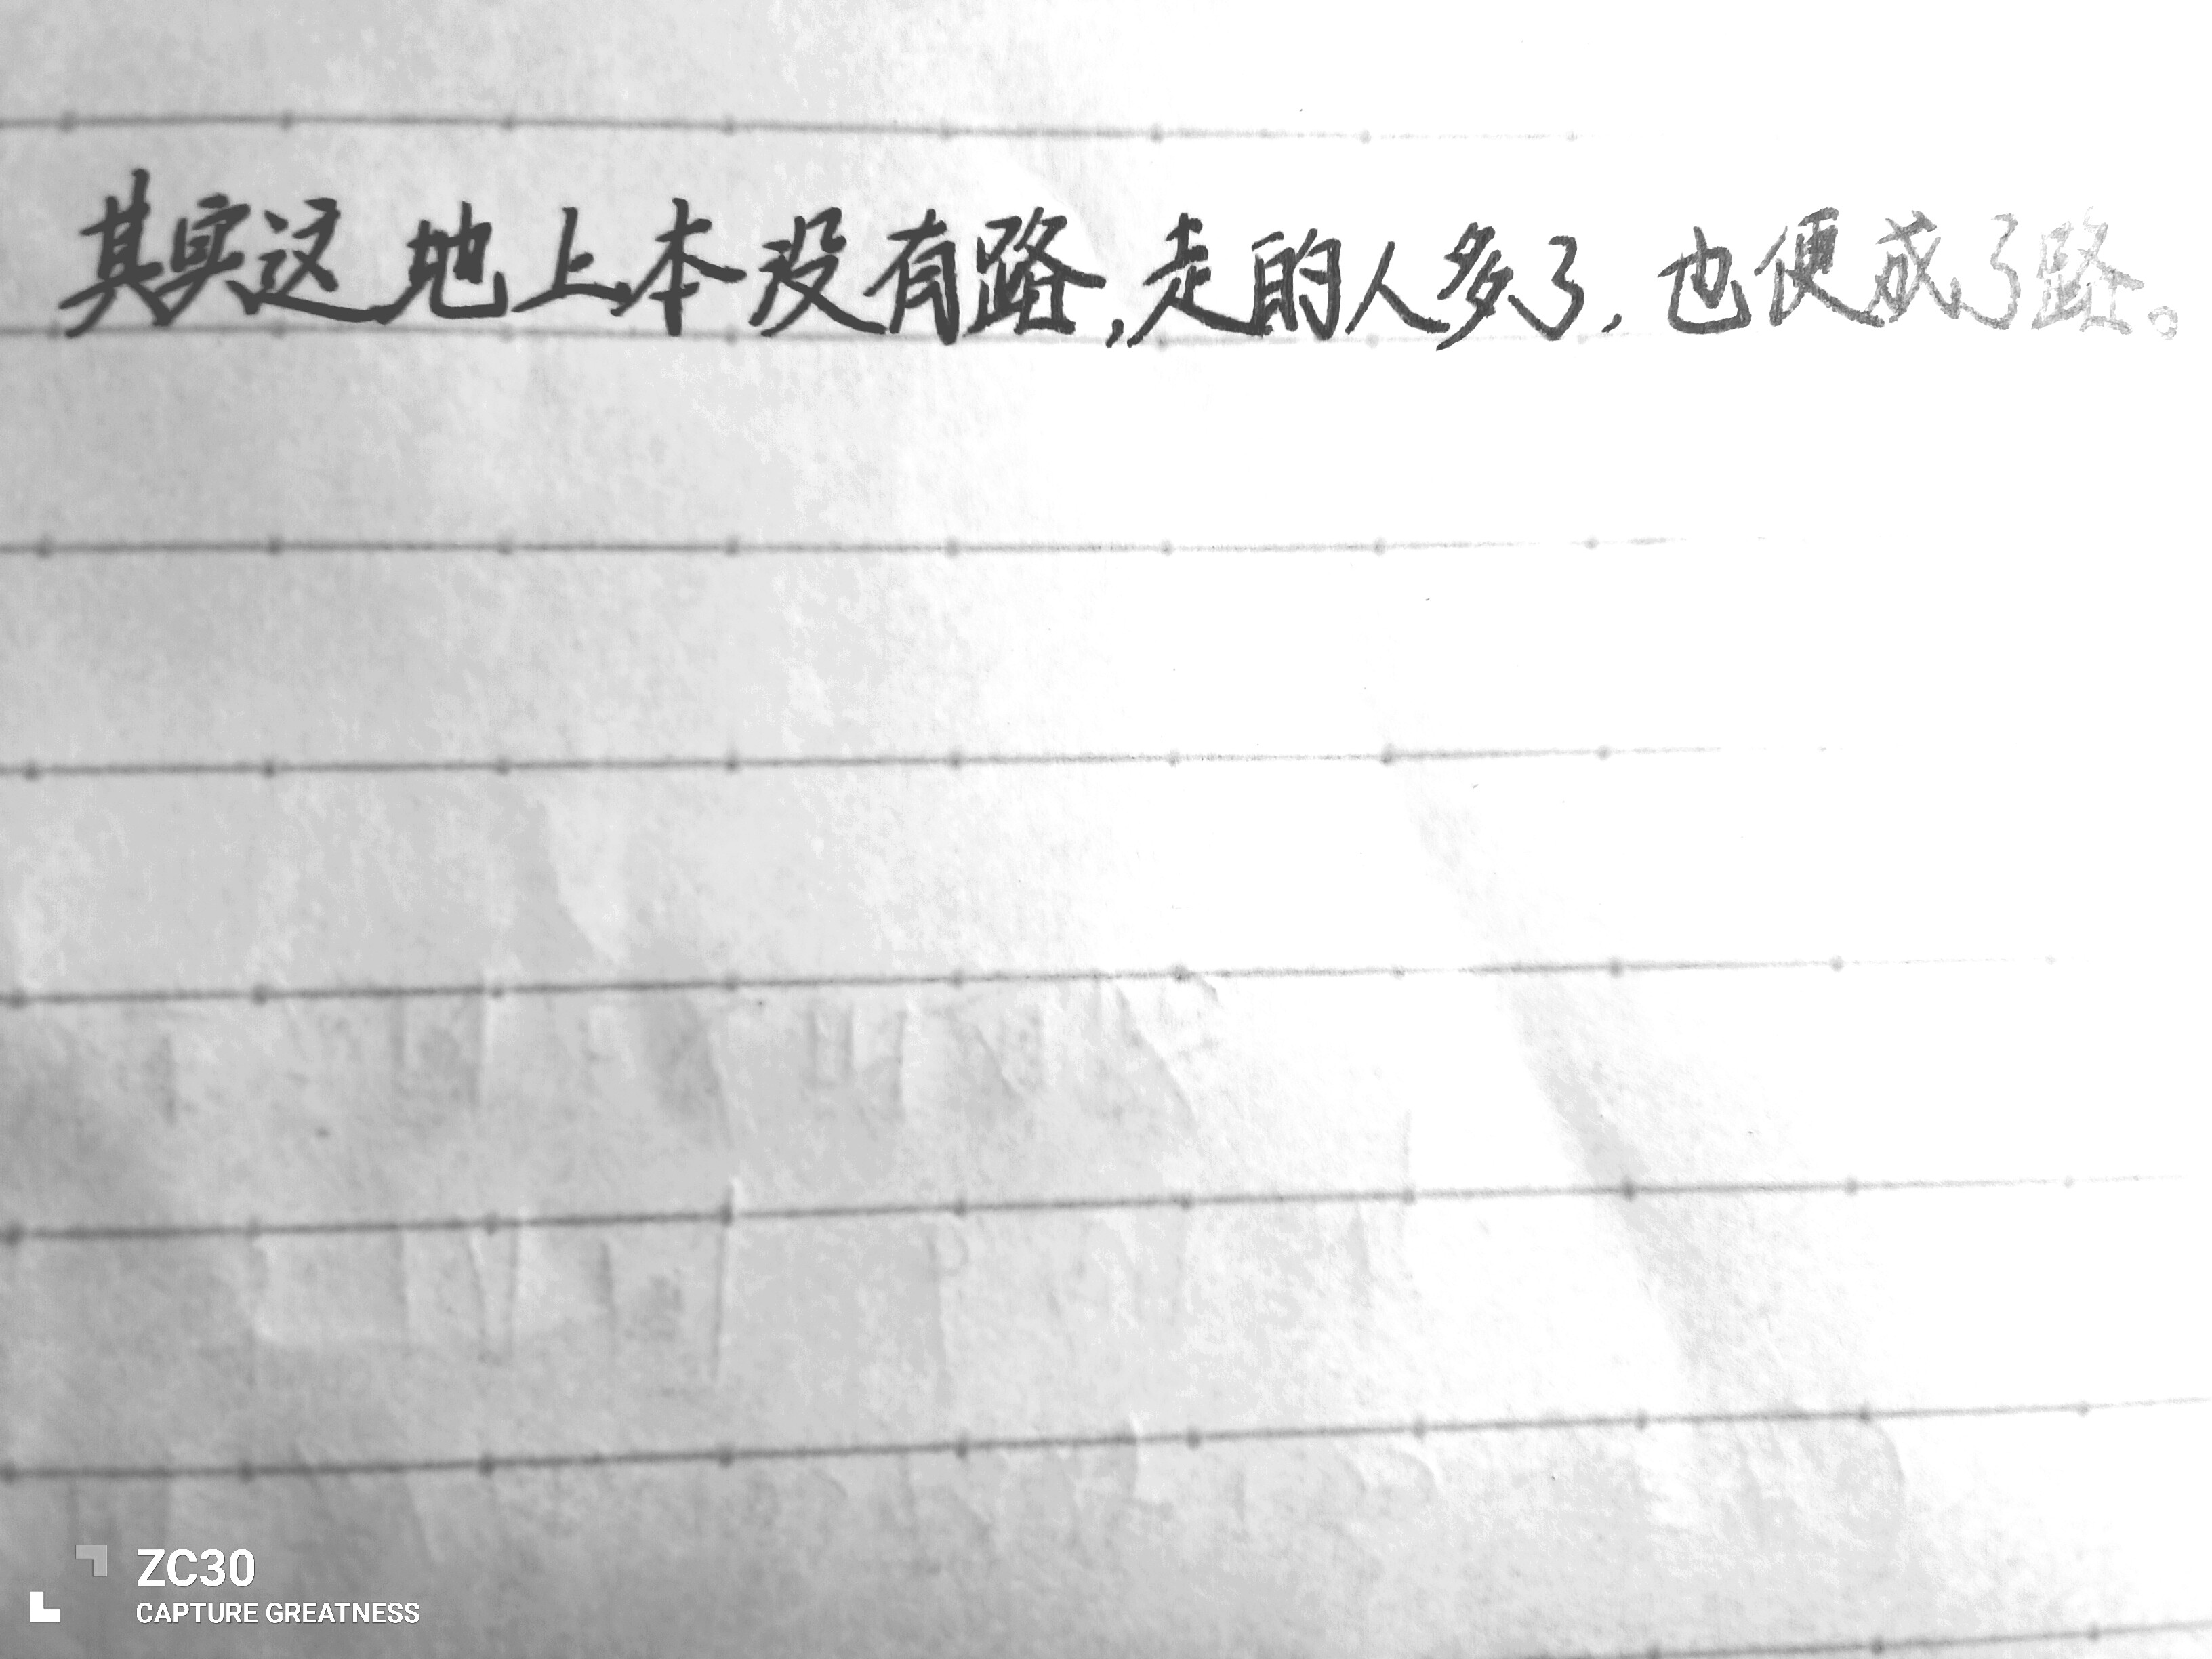 其实这地上本没有路,走的人多了,也便成了路。
ZC30
CAPTURE GREATNESS